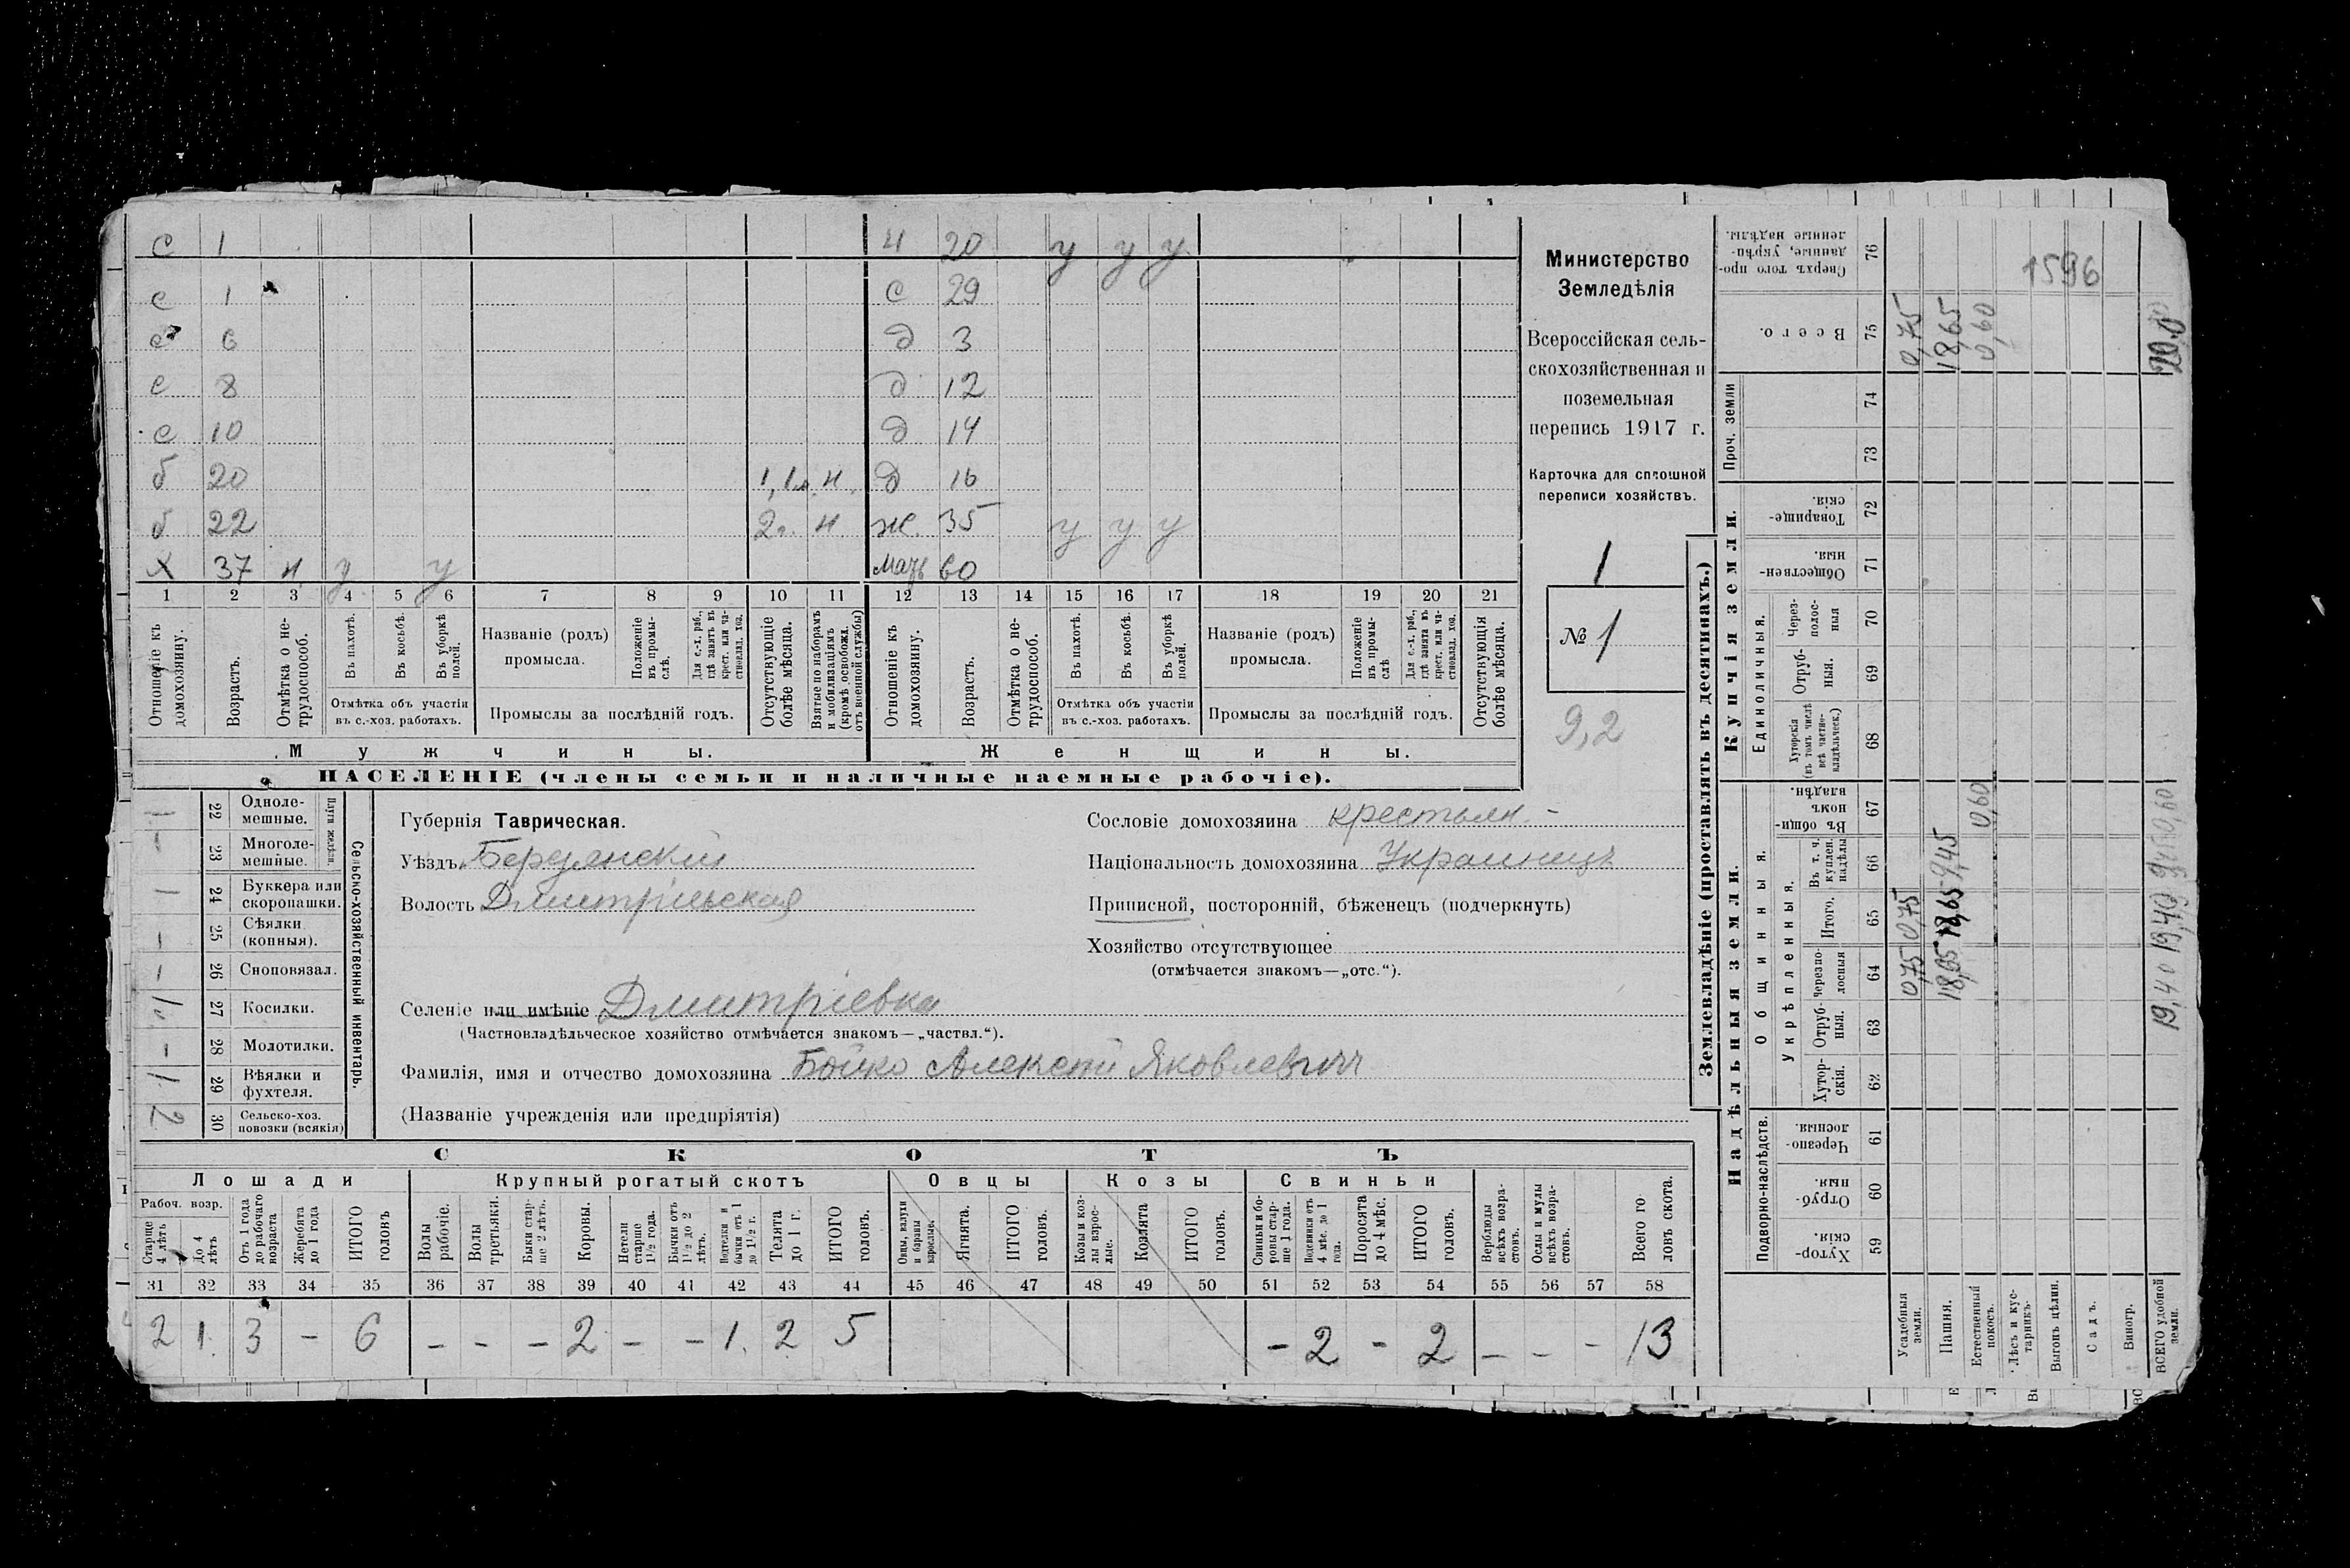 с 1 ч 20 у у у
с 1 с 29
с 6 д 3
с 8 д 12
с 10 д 14
б 20 н. д 16
б 22 2 г. н. ж. 35 у у у
х 37 н у у мать 60
1 2 3 4 5 6 7 8 9 10 11 12 13 14 15 16 17 18 19 20 21
Отношеніе къ домохозяину.
Возрастъ.
Отмѣтка о не-трудоспособ.
Въ пахотѣ.
Въ косьбѣ.
Въ уборкѣ полей.
Отмѣтка объ участіи въ с.-хоз. работахъ.
Названіе (родъ) промысла.
Положеніе въ промы-слѣ.
Для с.-х. раб., гдѣ занятъ въ крест. или ча-стновлад. хоз.
Промыслы за послѣдній годъ.
Отсутствующіе болѣе мѣсяца.
Взятые по наборамъ и мобилизаціямъ (кромѣ освобожд. отъ военной службы)
Отношеніе къ домохозяину.
Возрастъ.
Отмѣтка о не-трудоспособ.
Въ пахотѣ.
Въ косьбѣ.
Въ уборкѣ полей.
Отмѣтка объ участіи въ с.-хоз. работахъ.
Названіе (родъ) промысла.
Положеніе въ промы-слѣ
Для с.-х. раб., гдѣ занята въ крест. или ча-стновлад. хоз.
Промыслы за послѣдній годъ.
Отсутствующія болѣе мѣсяца.
Мужчины.
Женщины.
НАСЕЛЕНІЕ (члены семьи и наличные наемные рабочіе).
Министерство
Земледѣлія
Всероссійская сель-
скохозяйственная и
поземельная
перепись 1917 г.
Карточка для сплошной
переписи хозяйствъ.
1
№ 1
9,2
1 22 Одноле-мешные.
– 23 Многоле-мешные.
Плуги желѣзн.
1 24 Буккера или скоропашки.
– 25 Сѣялки (конныя).
– 26 Сноповязал.
27 Косилки.
– 28 Молотилки.
1 29 Вѣялки и фухтеля.
2 30 Сельско-хоз. повозки (всякія)
Сельско-хозяйственный инвентарь.
Губернія Таврическая.
Уѣздъ Бердянскій
Волость Дмитріевская
Сословіе домохозяина крестьян. –
Національность домохозяина Украинецъ
Приписной, посторонній, бѣженецъ (подчеркнуть)
Хозяйство отсутствующее
(отмѣчается знакомъ—„отс.“).
Селеніе или имѣніе Дмитріевка
(Частновладѣльческое хозяйство отмѣчается знакомъ—„частвл.“).
Фамилія, имя и отчество домохозяина Бойко Алексей Яковлевич
(Названіе учрежденія или предпріятія)
СКОТЪ
Лошади
Крупный рогатый скотъ
Овцы
Козы
Свиньи
Рабоч. возр.
Старше 4 лѣтъ
До 4 лѣтъ
Отъ 1 года до рабочаго возраста
Жеребята до 1 года
ИТОГО головъ
Волы рабочіе.
Волы третьяки.
Быки стар-ше 2 лѣтъ.
Коровы.
Нетели старше 1½ года.
Бычки отъ 1½ до 2 лѣтъ.
бычки отъ 1 до 1½ г.
Телята до 1 г.
ИТОГО головъ.
Овцы, валухи и бараны взрослые.
Ягнята.
ИТОГО головъ.
Козы и коз-лы взрос-лые.
Козлята
ИТОГО головъ.
Свиньи и бо-ровы стар-ше 1 года.
Подсвинки отъ 4 мѣс. до 1 года.
Поросята до 4 мѣс.
ИТОГО головъ.
Верблюды всѣхъ возра-стовъ.
Ослы и мулы всѣхъ возра-стовъ.
Всего го-ловъ скота.
31 32 33 34 35 36 37 38 39 40 41 42 43 44 45 46 47 48 49 50 51 52 53 54 55 56 57 58
2 1. 3 – 6 – – – 2 – – 1. 2 5 – 2 – 2 – – – 13
Землевладѣніе (проставлять въ десятинахъ.)
Надѣльныя земли.
Купчія земли.
Проч. земли
Подворно-наслѣдств.
Общинныя.
Укрѣпленныя.
Единоличныя.
Сверхъ того про-данные, укрѣп-ленные надѣлы. 76
Всего. 75
74
73
Товарище-скія. 72
Обществен-ныя. 71
Через-полос-ныя 70
Отруб-ныя. 69
Хуторскія (въ томъ числѣ всѣ частно-владѣльческ.) 68
Въ общин-номъ владѣн. 67
Въ т. ч. куплен. надѣлы 66
Итого. 65
Черезпо-лосныя 64
Отруб-ныя. 63
Хутор-скія. 62
Черезпо-лосныя. 61
Отруб-ныя. 60
Хутор-скія. 59
Усадебныя земли. 0,75 0,75 0,75
Пашня. 18,65 18,65 9,45 18,65
Естественный покосъ. 0,60 0,60
Лѣсъ и кус-тарникъ.
Выгонъ цѣлин.
Садъ.
Виногр.
ВСЕГО удобной земли. 19,40 19,40 0,60
1596